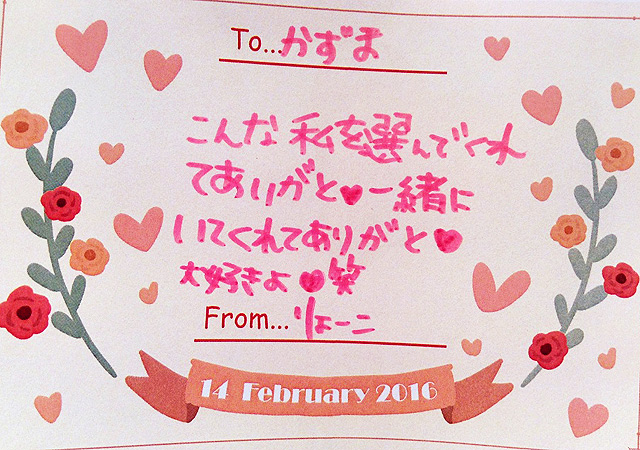 To...かずま
こんな私を選んでくれ
てありがと♥一緒に
いてくれてありがと♥
大好きよ♥笑
From...りょーこ
14 February 2016